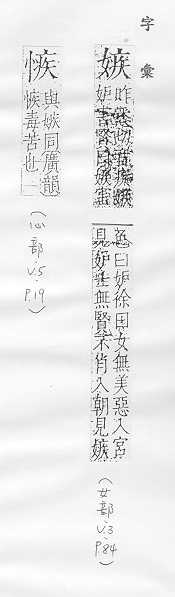 字彙
嫉
昨悉切音疾嫉
妬害賢曰嫉害
曰妬徐曰女無美惡入宮
見妬士無賢不肖入朝見嫉
(女部.V.3.P.84)
愱
與嫉同廣韻
愱毒苦也
(心部.V.5.P.19)